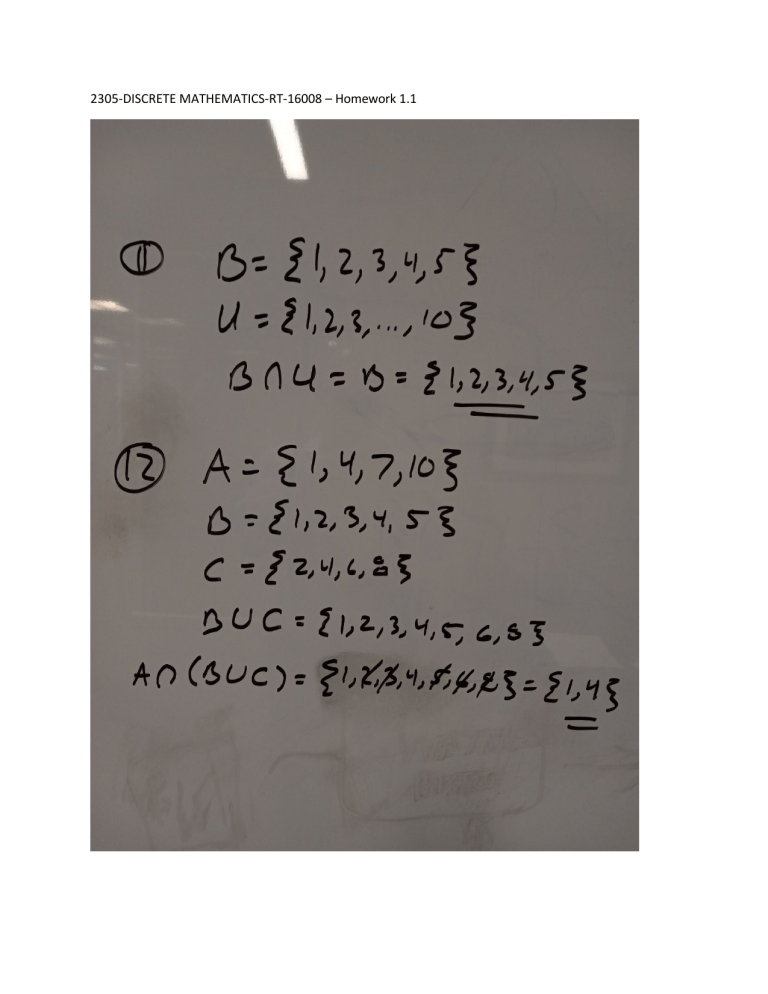 2305-DISCRETE MATHEMATICS-RT-16008 – Homework 1.1
⑪ B = {1, 2, 3, 4, 5}
U = {1, 2, 3, ..., 10}
B ∩ U = B = {1, 2, 3, 4, 5}
⑫ A = {1, 4, 7, 10}
B = {1, 2, 3, 4, 5}
C = {2, 4, 6, 8}
B ∪ C = {1, 2, 3, 4, 5, 6, 8}
A ∩ (B ∪ C) = {1, 2, 3, 4, 5, 6, 8} = {1, 4}